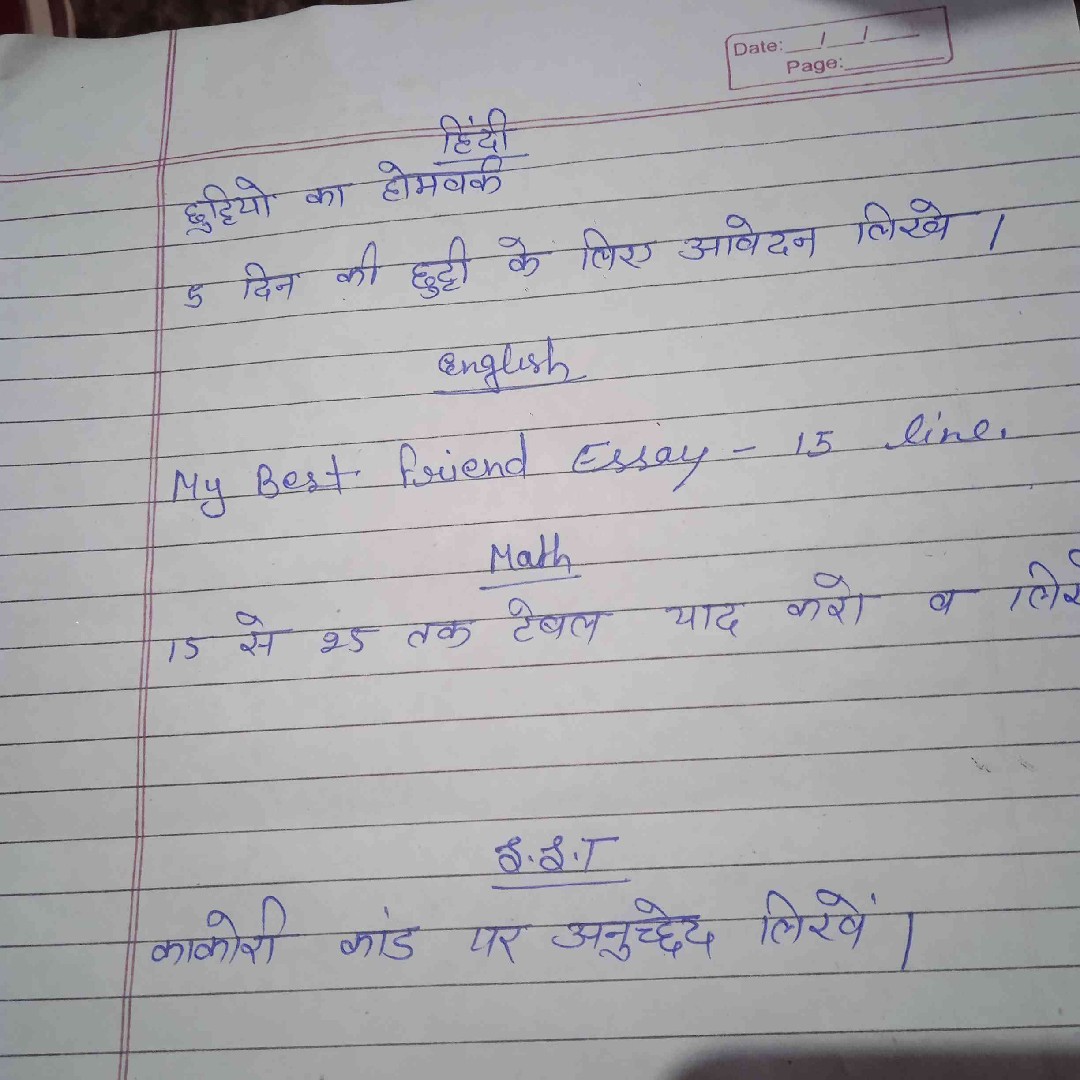 Date: / /
Page:
हिंदी
छुट्टियो का होमवर्क
5 दिन की छुट्टी के लिए आवेदन लिखे ।
English
My Best friend Essay - 15 line.
Math
15 से 25 तक टेबल याद करो व
S.S.T
काकोरी कांड पर अनुच्छेद लिखें ।